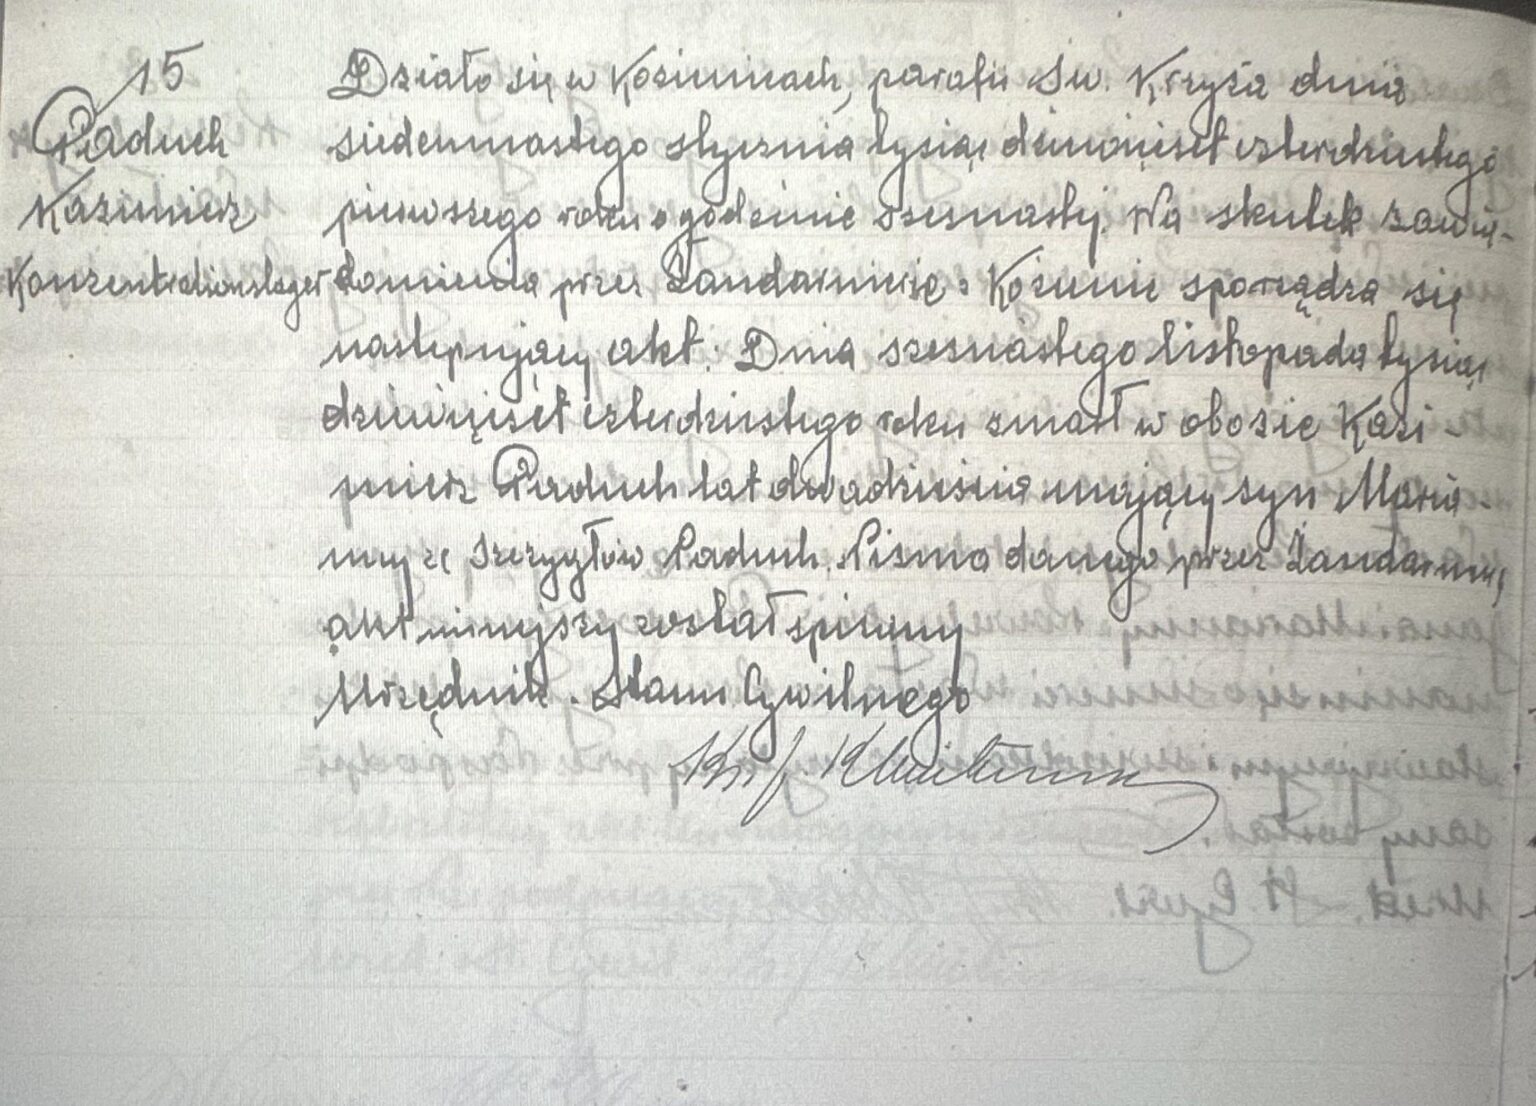 15
Paduch
Kazimierz
Konzentrationslager
Działo się w Kozienicach, parafii Św. Krzyża dnia
siedemnastego stycznia tysiąc dziewięćset czterdziestego
pierwszego roku o godzinie szesnastej. Na skutek zawia-
domienia przez Żandarmerię z Kozienic sporządza się
następujący akt: Dnia szesnastego listopada tysiąc
dziewięćset czterdziestego roku zmarł w obozie Kazi-
mierz Paduch lat dwadzieścia mający syn Maria-
nny ze Szczygłów Paduch. Pisma danego przez Żandarmerię
akt niniejszy został spisany
Urzędnik Stanu Cywilnego